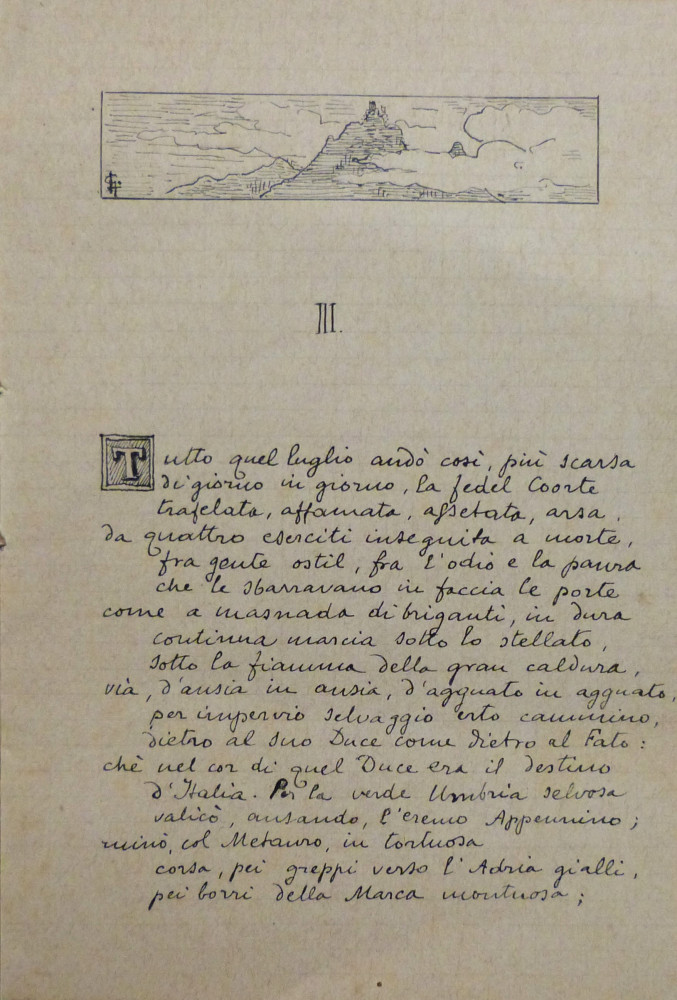 III.
Tutto quel luglio andò così, più scarsa
di giorno in giorno, la fedel Coorte
trafelata, affamata, assetata, arsa,
da quattro eserciti inseguita a morte,
fra gente ostil, fra l'odio e la paura
che le sbarravano in faccia le porte
come a masnada di briganti, in dura
continua marcia sotto lo stellato,
sotto la fiamma della gran caldura,
via, d'ansia in ansia, d'agguato in agguato,
per impervio selvaggio erto cammino,
dietro al suo Duce come dietro al Fato:
chè nel cor di quel Duce era il destino
d'Italia. Per la verde Umbria selvosa
valicò, ansando, l'eremo Appennino;
ruinò, col Metauro, in tortuosa
corsa, pei greppi verso l'Adria gialli,
pei borri della Marca montuosa;